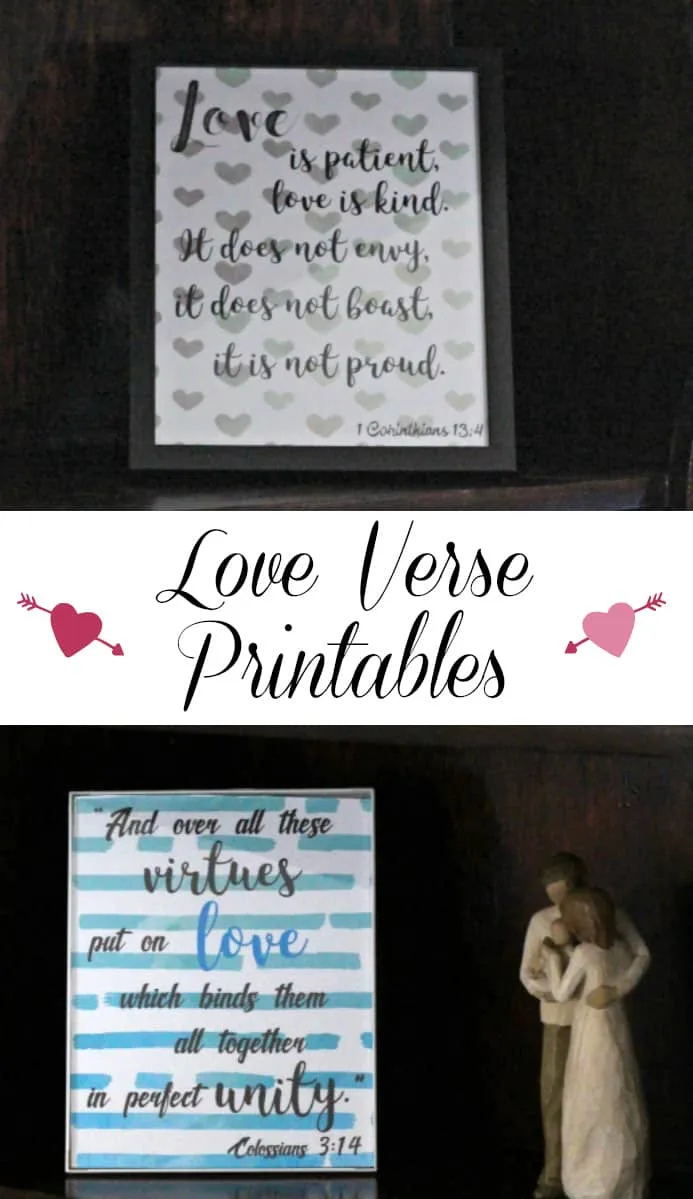 Love
is patient,
love is kind.
It does not envy,
it does not boast,
it is not proud.
1 Corinthians 13:4
Love Verse
Printables
"And over all these
virtues
put on love
which binds them
all together
in perfect unity."
Colossians 3:14